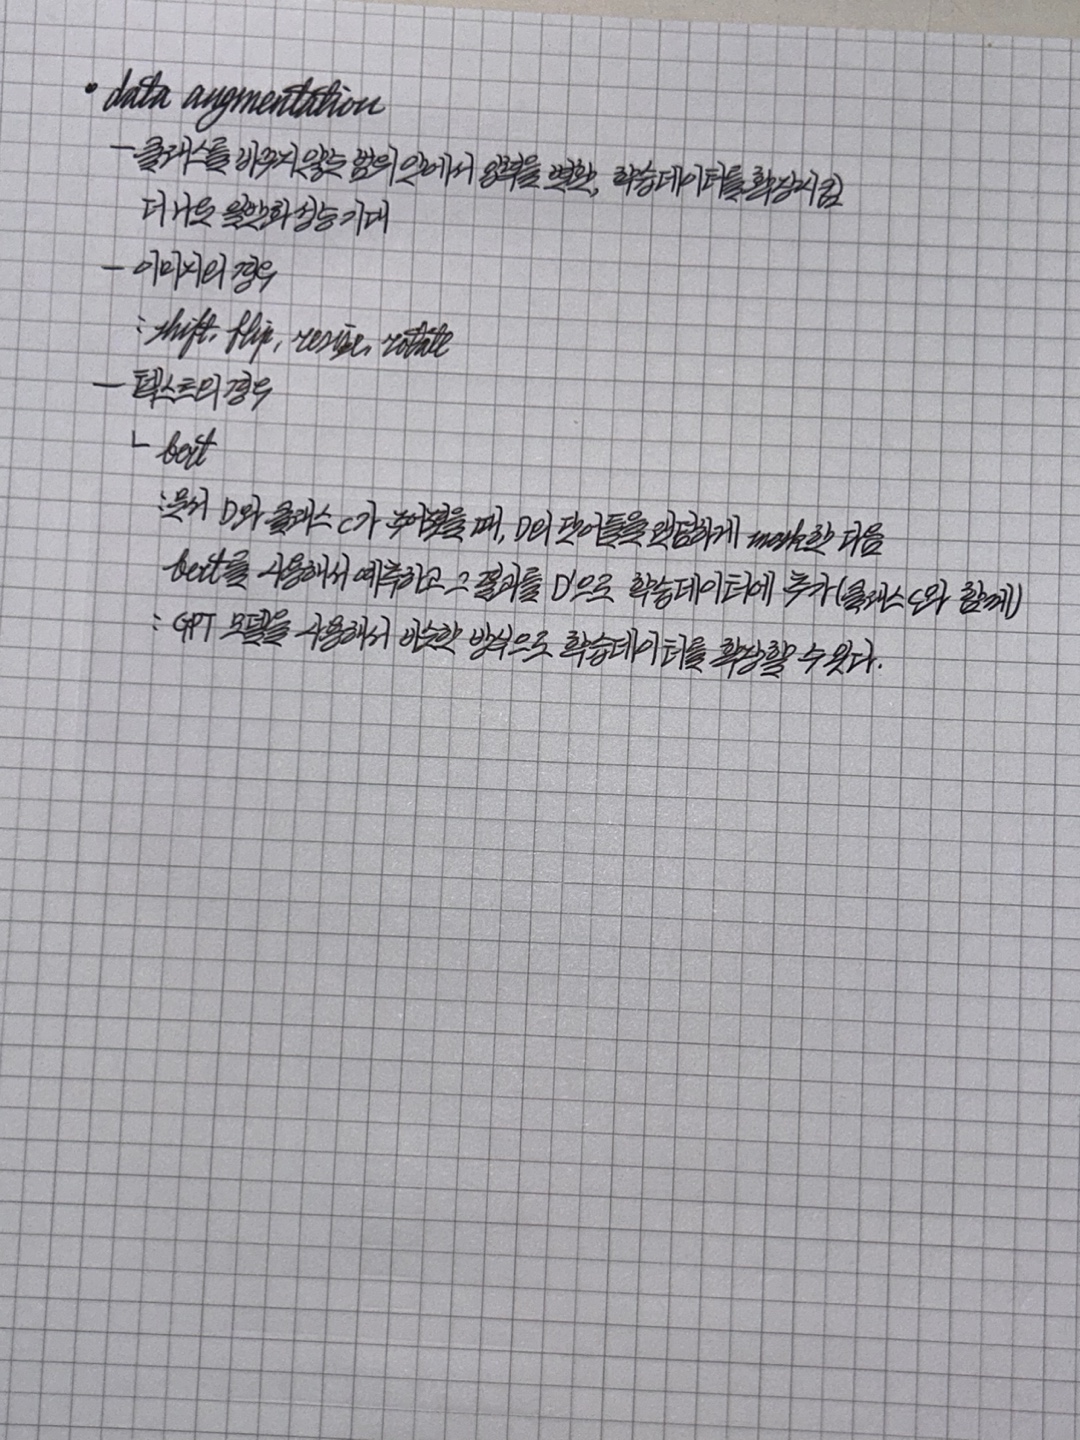 • data augmentation
- 클래스를 바꾸지 않는 범위 안에서 입력을 변환, 학습데이터를 확장시킴
더 나은 일반화 성능 기대
- 이미지의 경우
: shift, flip, resize, rotate
- 텍스트의 경우
└ bert
: 문서 D와 클래스 C가 주어졌을 때, D의 단어들을 랜덤하게 mask한 다음
bert를 사용해서 예측하고 그 결과를 D'으로 학습데이터에 추가(클래스 C와 함께)
: GPT 모델을 사용해서 비슷한 방식으로 학습데이터를 확장할 수 있다.